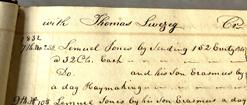 with Thomas Livezey Cr
1832
7th Mo 2d Lemuel Jones by sending 102 Empty
@ 32 Cts. Cash
Do. and his son Erasmus by
a day Haymaking
9th Lemuel Jones by his son Erasmus a